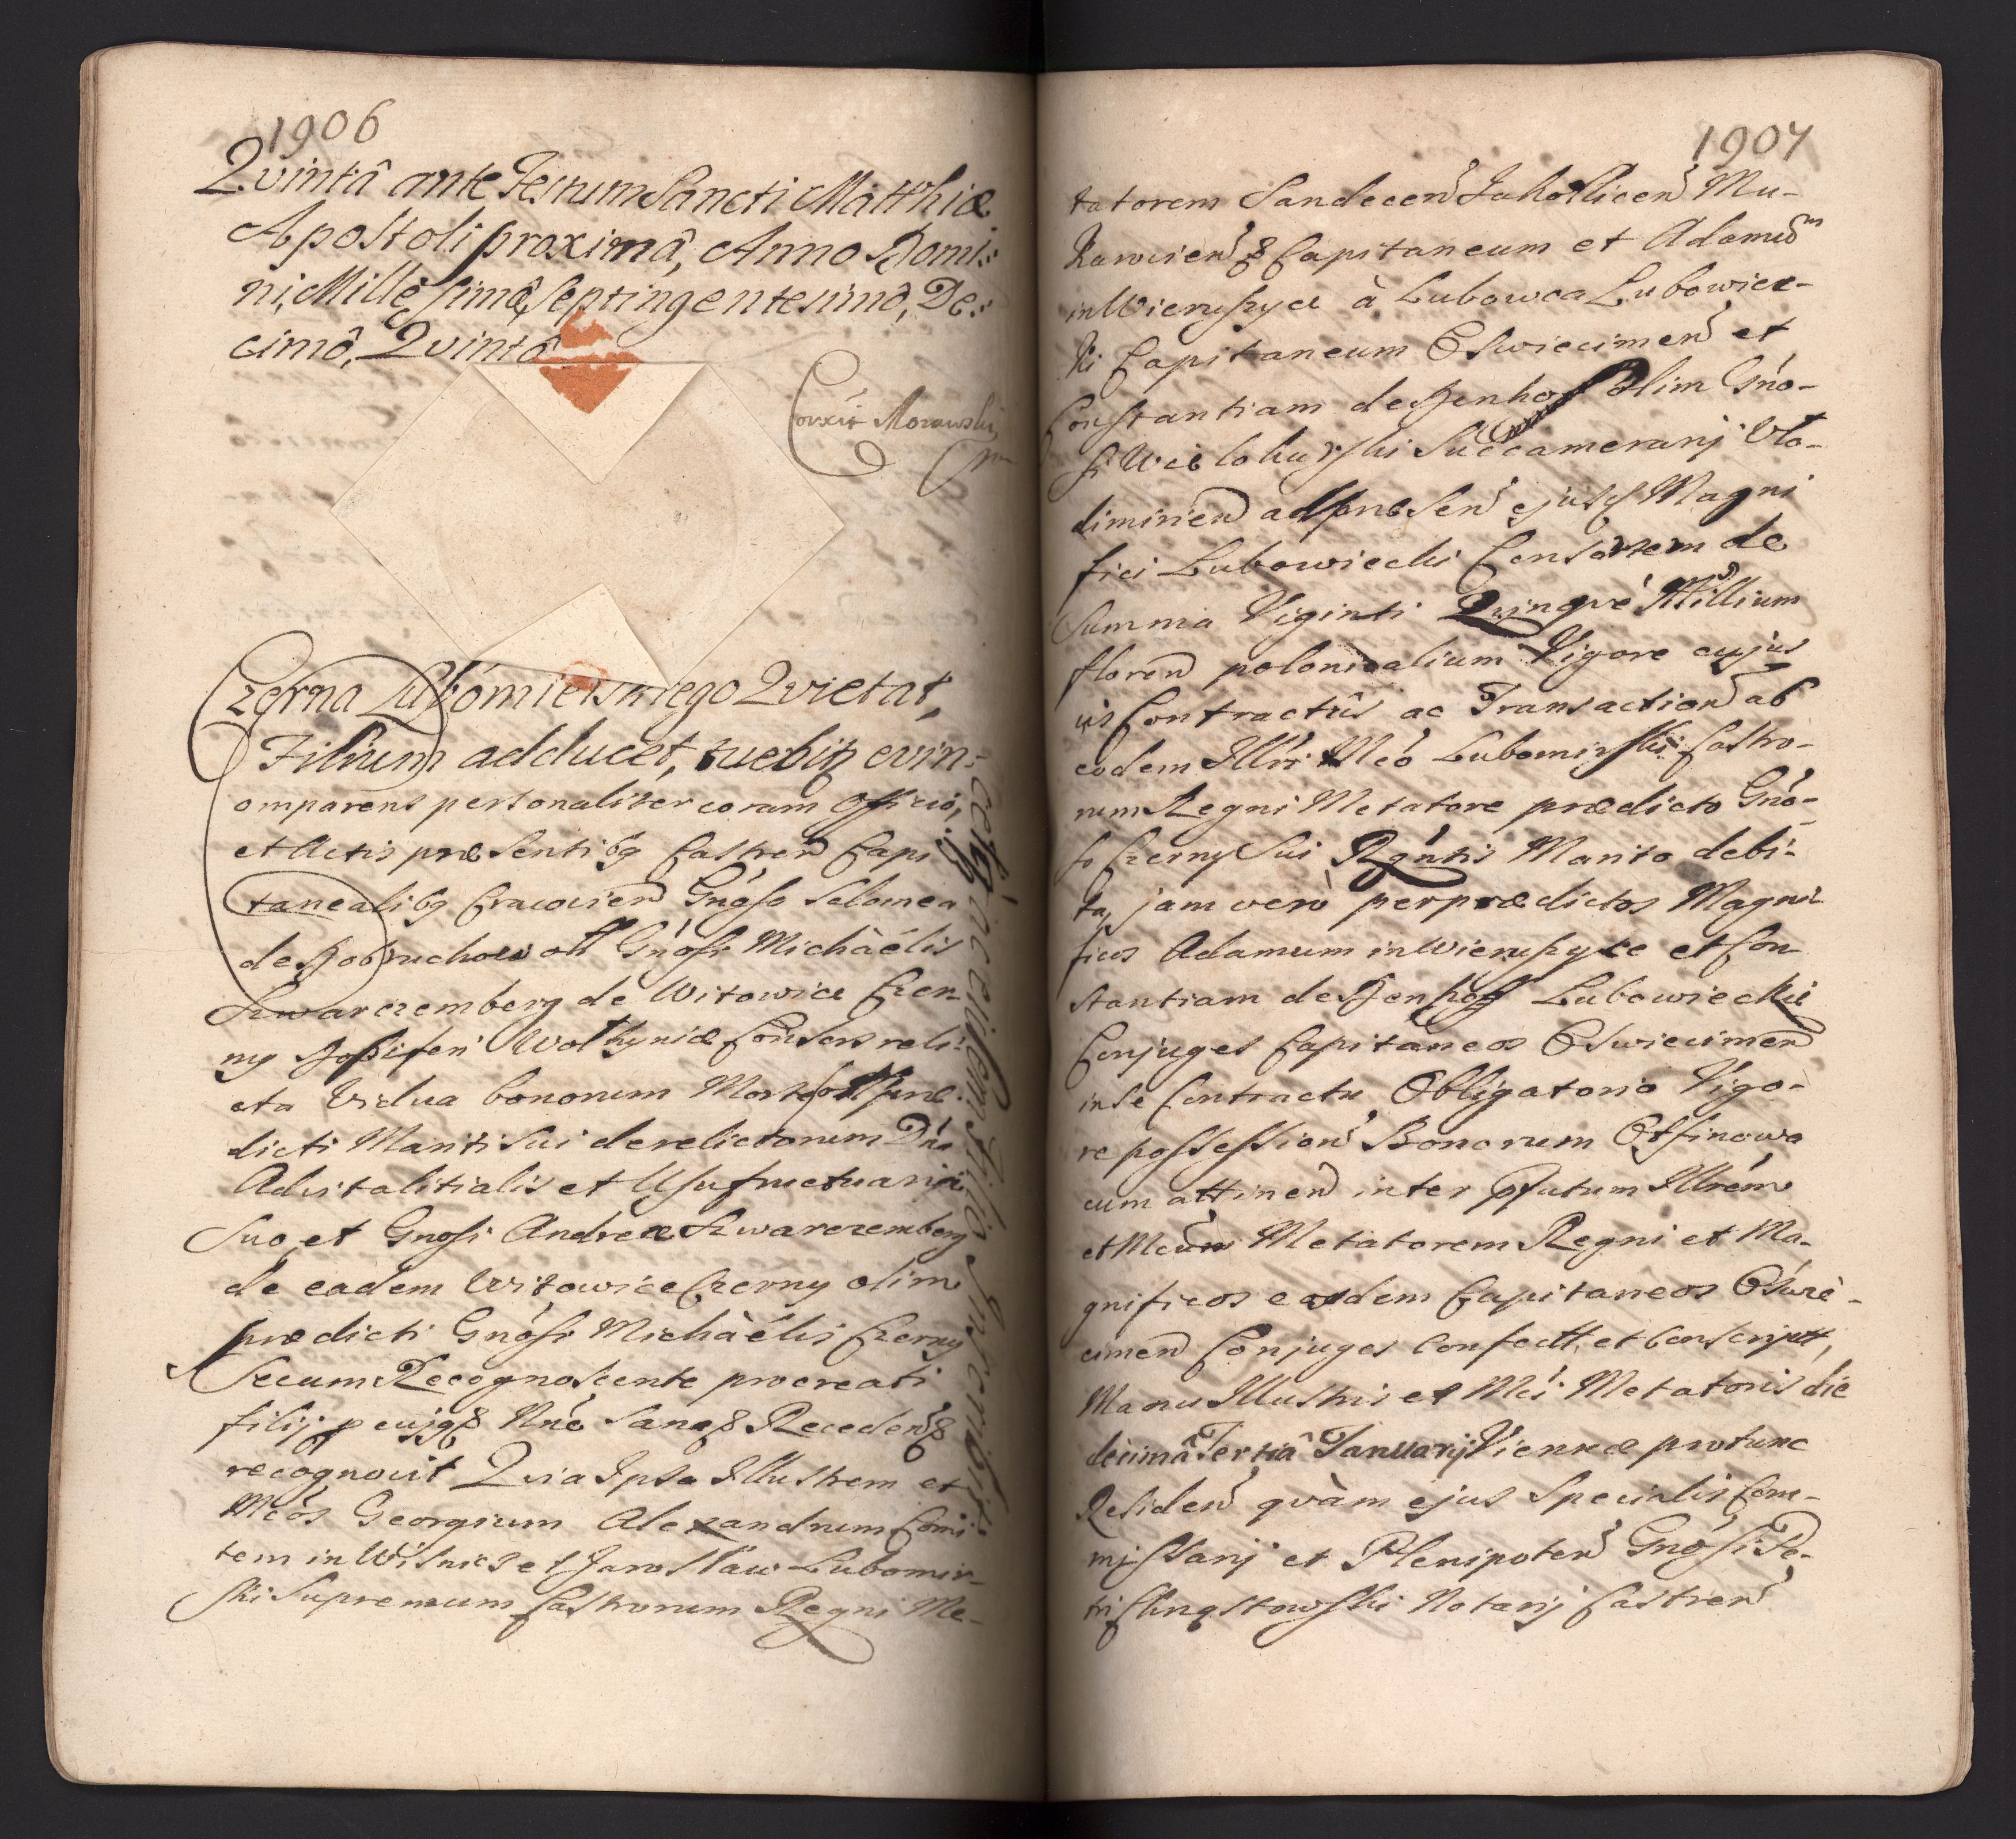 1906
Qvintâ ante Festum Sancti Matthiæ
Apostoli proximâ, Anno Domi-
ni, Millesimô, Septingentesimô, De-
cimô, Qvintô
Correxit Morawski
Czerna Lubomirskiego Qvietat,
Filium adducet, tuebitq evin-
cet, Evidentiâ Inscribit
omparens personaliter coram Officio,
et Actis præsentibq Castren Capi
tanealibq Cracovien Gnósa Salomea
de Pobruchow olî Gnósi Michàélis
Szwarczemberg de Witowice Czer-
ny Possesi Wolhyniæ Consors reli-
cta Vidua bonorum Morte olî præ-
dicti Mariti Sui derelictorum Dna
Advitalitialis et Usufructuaria
Suo, et Gnosi Andreæ Szwarczemberg
de eadem Witowice Czerny olim
prædicti Gnósi Michàélis Czerny
Secum Recognoscente procreati
filij
recognovit Qvia Ipsa Illustrem et
Mcós Georgium Alexandrum Comi
tem in Wisnicz et Jaroslaw Lubomir-
ski Supremum Castrorum Regni Me-
1907
tatorem Sandecen Tukollicen Mu-
Kawcien & Capitaneum et Adamum
in Wierzbyce à Lubowca Lubowiec-
ki Capitaneum Oswiecimen et
Constantiam de Denhoff Olim Gńo-
si Wielohurski Succamerarij Vlo-
dimirien ad præsen ejusq Magni
fici Lubowiecki Consortem de
Summa Viginti Qvinqvé Millium
floren polonicalium Vigore cujus
vis Contractûs ac Transaction ab
eodem Illri Mcó Lubomirski Castro-
rum Regni Metatore prædicto Gńo-
so Czerny Sui Rgńtis Marito debi-
ta, jam verò per prædictos Magni
ficos Adamum in Wierzbyce et Con
stantiam de Denhoff Lubowieckie
Conjuges Capitaneos Oswiecimen
in se Contractu Obligatorio Vigo-
re possession Bonorum Osfinowa
cum attinen inter pfatum Illrém
et Mcum Metatorem Regni et Ma-
gnificos eosdem Capitaneos Oswie-
cimen Conjuges confectt, et conscriptt,
Manu Illustris et Mci Metatoris die
decimâ Tertiâ Januarij Viennæ protunc
Residen qvàm ejus Specialis Com-
mjssarij et Plenipoten Gnósi Pe-
tri Chrqstowski Notarij Castren